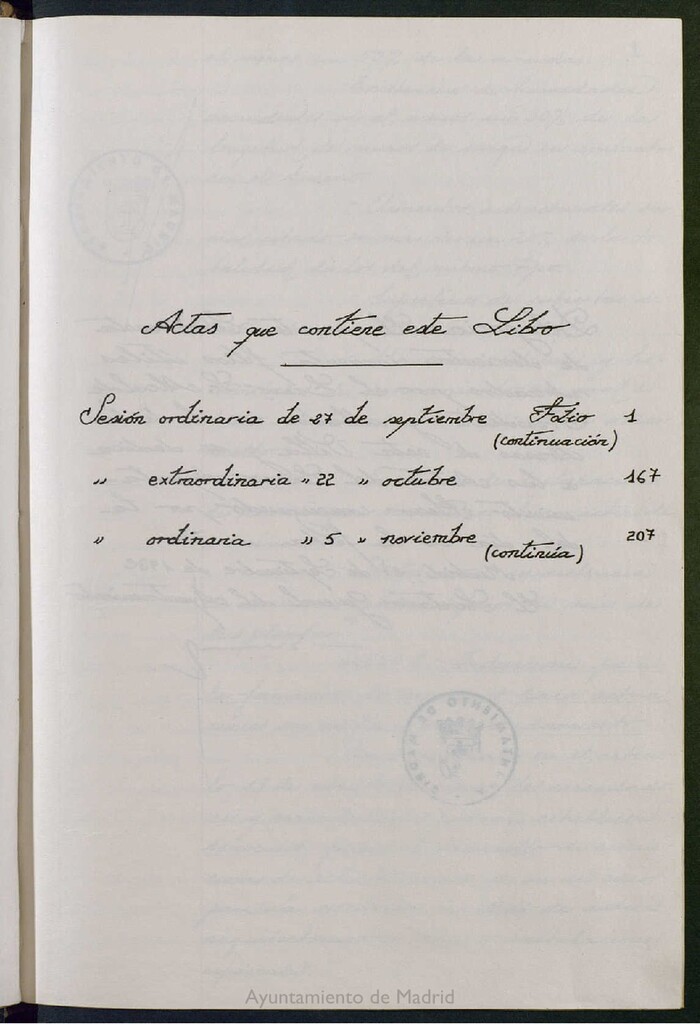 Actas que contiene este Libro
Sesión ordinaria de 27 de septiembre Folio 1
(continuación)
" extraordinaria " 22 " octubre 167
" ordinaria " 5 " noviembre 207
(continúa)
Ayuntamiento de Madrid